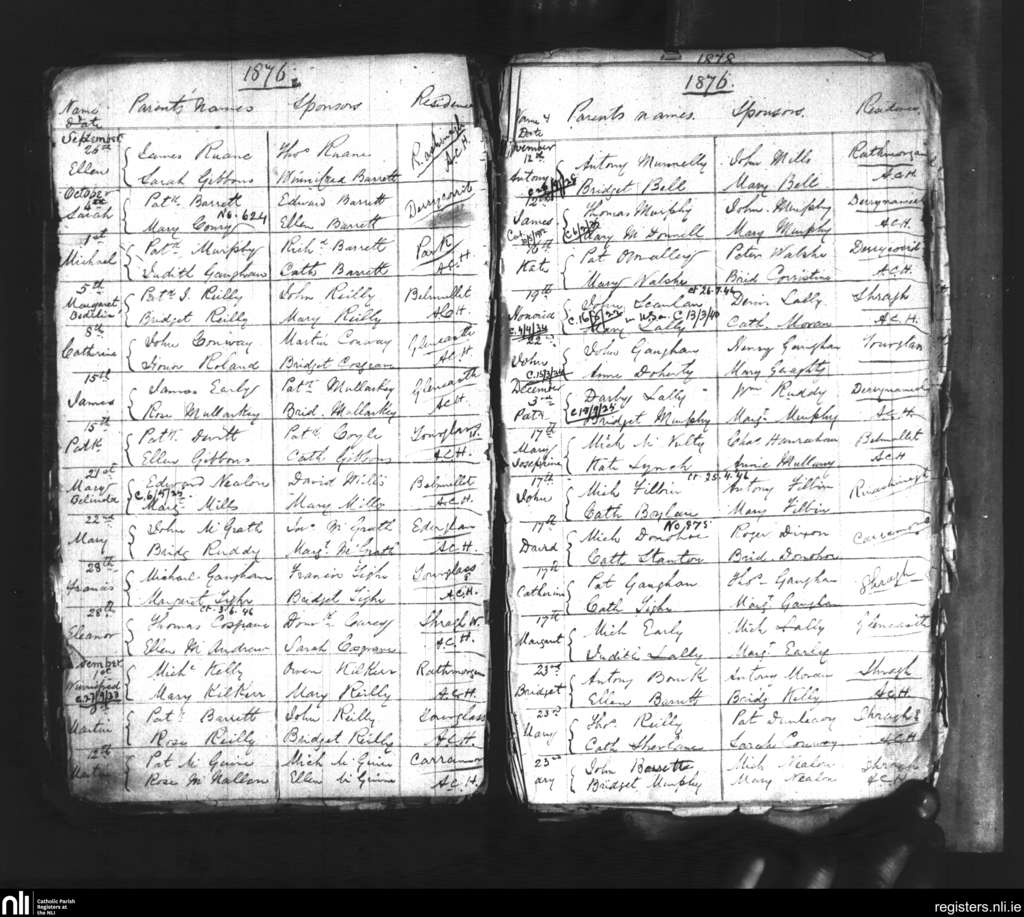 1876.
Name & Date Parents' Names Sponsors Residence
September
26th James Ruane Thos Ruane Rashinagh
Ellen Sarah Gibbons Winnifred Barrett A.C.H.
October
4th Patk. Barrett Edward Barrett Derrycorib
Sarah Mary Conry No. 624 Ellen Barrett
1st Pat. Murphy Richd. Barrett Park
Michael Judith Gaughan Cath Barrett A.C.H.
5th Patk. J. Reilly John Reilly Belmullet
Margaret Bedelia Bridget Reilly Mary Reilly A.C.H.
8th John Conway Martin Conway Glencastle
Catherine Honor Roland Bridget Cosgram A.C.H.
15th James Early Patk. Mullarkey Glencastle
James Rose Mullarkey Brid. Mullarkey A.C.H.
15th Patk. Devitt Patk. Coyle Tourglass
Patk Ellen Gibbons Cath Gibbons A.C.H.
21st Edward Nealon David Mills Belmullet
Mary Belinda C. 6/5/22 Margt. Mills Mary Mills A.C.H.
22nd John McGrath Jno. McGrath Ederglan
Mary Bridg Ruddy Margt. McGrath A.C.H.
28th Michael Gaughan Francis Tighe Tourglass
Francis Margaret Tighe Bridget Tighe A.C.H.
28th ct. 3.6.46 Thomas Cosgrave Domk. Carey Shragh W.
Eleanor Ellen McAndrew Sarah Cosgrave A.C.H.
1st Michl. Kelly Owen Kilker Rathmorgan
Winnifred C. 27/9/23 Mary Kilker Mary Reilly A.C.H.
Pat. Barrett John Reilly Tourglass
Martin Rose Reilly Bridget Reilly A.C.H.
12th Pat McGuire Mich McGuire Carramore
Rose McNallan Ellen McGuire A.C.H.
1878
1876.
Name & Date Parents names. Sponsors. Residence
November
12th Antony Munnelly John Mills Rathmorgan
Antony Bridget Bell Mary Bell A.C.H.
12th Thomas Murphy John. Murphy Derrynameel
James Mary McDonnell Mary Murphy A.C.H.
16th Pat Omalley Peter Walshe Derrycorib
Kate Mary Walshe Brid Corristine A.C.H.
ct 26.7.46
19th John Scanlan Denis Lally Shragh
Honoria C. 4/4/34 Mary Lally C 13/3/40 Cath. Moran A.C.H.
22nd John Gaughan Henry Gaughan Tourglan
John C. 15/3/24 Anne Doherty Mary Geraghty
December
3rd Darby Lally Wm Ruddy Derrynameel
Patk. C. 19/9/25 Bridget Murphy Margt. Murphy A.C.H.
17th Mich McNulty Chas Hanrahan Belmullet
Mary Josephine Kate Lynch Annie Mullowny A.C.H
ct. 25.4.46
17th Mich Filbin Antony Filbin
John Cath Boylan Mary Filbin
17th Mich Donohoe No, 975 Roger Dixon Carramore
David Cath Stanton Brid. Donohoe
17th Pat Gaughan Thos. Gaughan Shragh
Catherine Cath Tighe Margt Gaughan
17th Mich Early Mich Lally Glencastle
Margaret Judith Lally Margt. Early
23rd Antony Bourk Antony Moran Shragh
Bridget Ellen Barrett Bridg Kelly A.C.H.
23rd Thos. Reilly Pat Dunleavy Shragh
Mary Cath Sarah Conway A.C.H.
23rd John Barrett Mich Nealon Shragh
ary Bridget Murphy Mary Nealon A.C.H.
nli Catholic Parish Registers at the NLI
registers.nli.ie